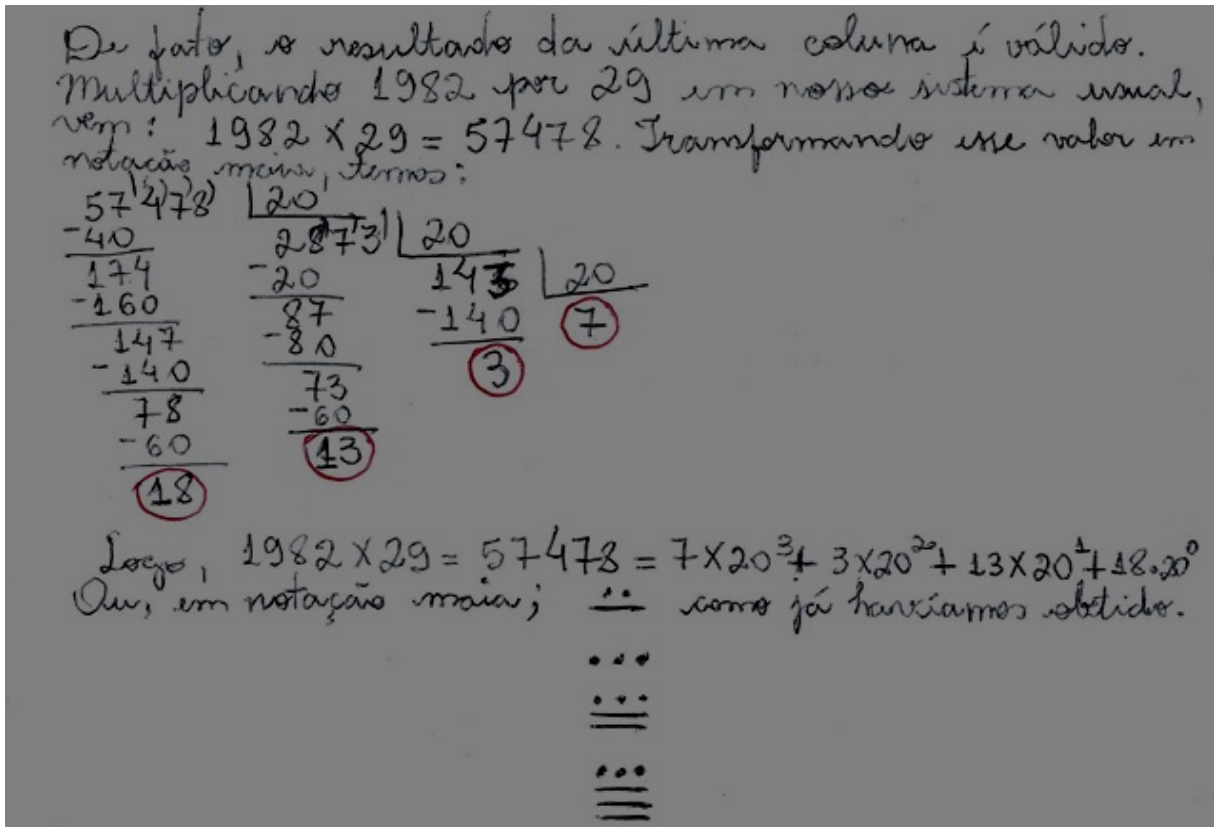 De fato, o resultado da última coluna é válido.
Multiplicando 1982 por 29 em nosso sistema usual,
vem: 1982 × 29 = 57478. Transformando esse valor em
notação maia, temos:
57478 20
-40 2873 20
174 -20 143 20
-160 87 -140 7
147 -80 3
-140 73
78 -60
-60 13
18
Logo, 1982 × 29 = 57478 = 7×20³ + 3×20² + 13×20¹ + 18.20⁰
Ou, em notação maia; como já havíamos obtido.